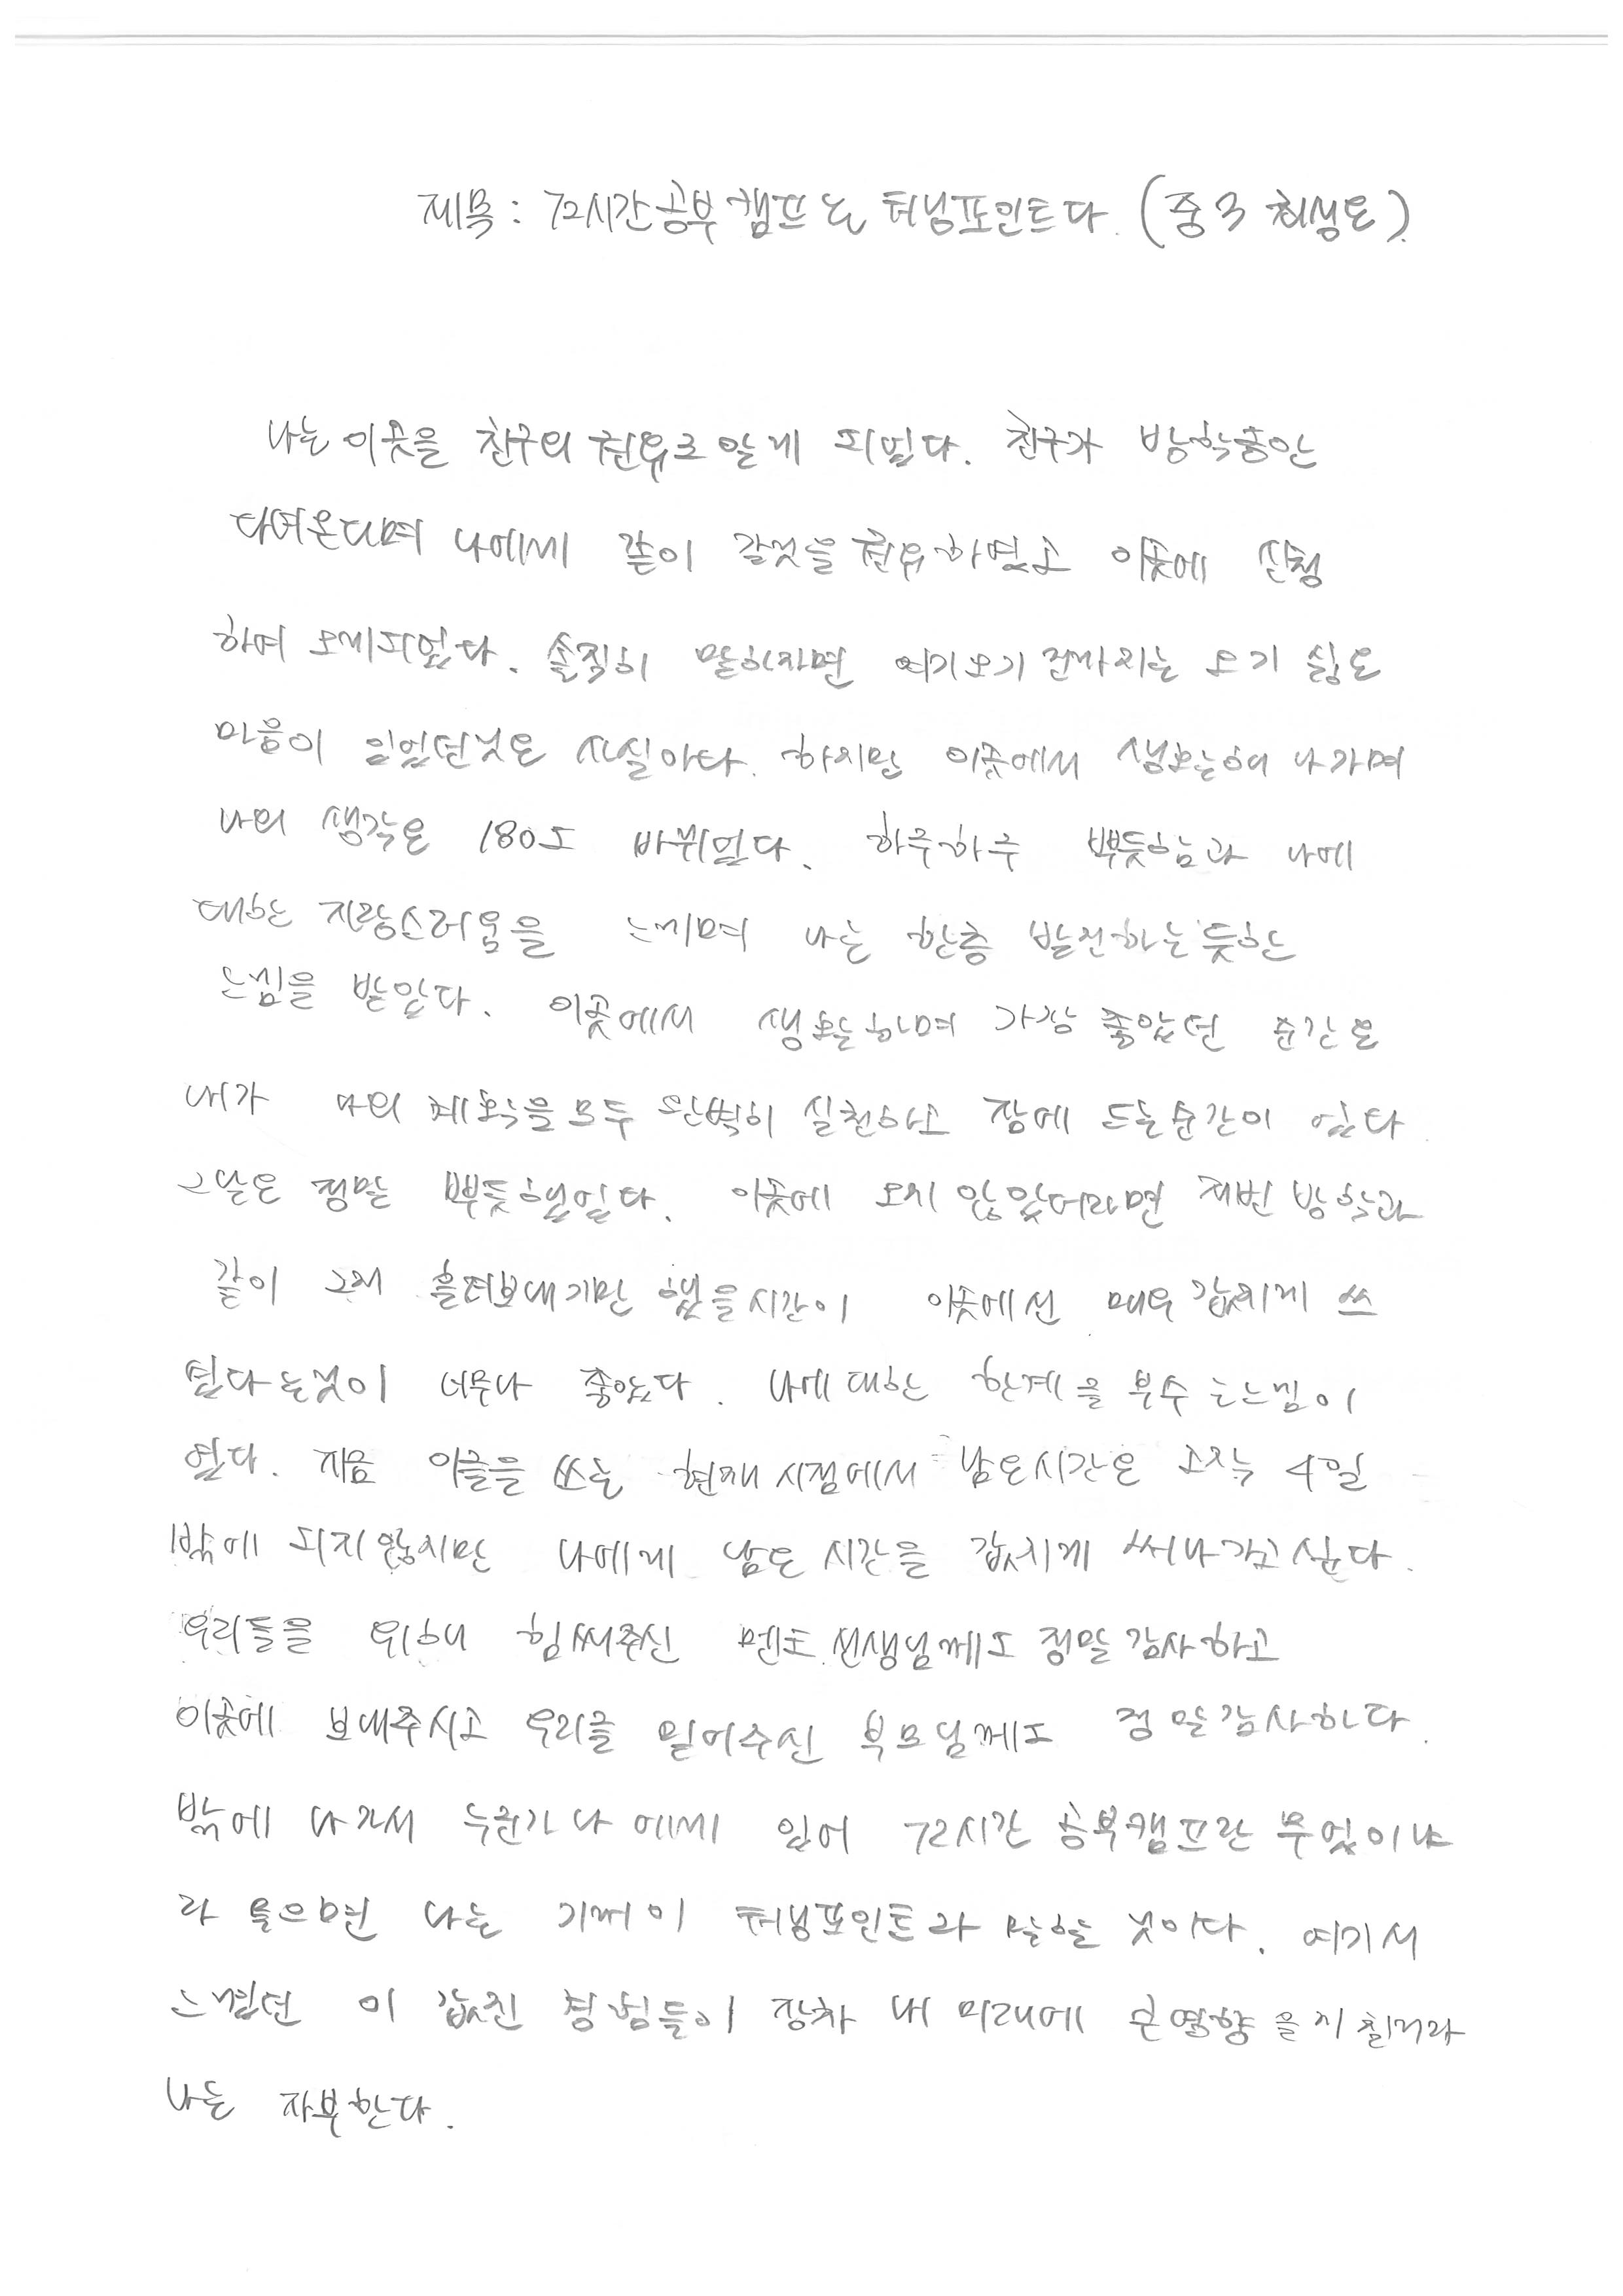 제목 : 72시간공부캠프는 터닝포인트다. (중3 최성은).
나는 이곳을 친구의 권유로 알게 되었다. 친구가 방학중안
다녀온다며 나에게 같이 갈것을 권유하였고 이곳에 신청
하여 오게되었다. 솔직히 말하자면 여기오기 전까지는 오기 싫은
마음이 있었던것은 사실이다. 하지만 이곳에서 생활해 나가며
나의 생각은 180도 바뀌었다. 하루하루 뿌듯함과 나에
대한 자랑스러움을 느끼며 나는 한층 발전하는듯한
느낌을 받았다. 이곳에서 생활하며 가장 좋았던 순간은
내가 나의 계획을 모두 완벽히 실천하고 잠에 드는순간이 었다
그날은 정말 뿌듯했었다. 이곳에 오지 않았더라면 저번 방학과
같이 그저 흘려보내기만 했을시간이 이곳에선 매우 값지게 쓰
였다는것이 너무나 좋았다. 나에 대한 한계를 부수는느낌이
였다. 지금 이글을 쓰는 현재 시점에서 남은시간은 고작 4일
밖에 되지않지만 나에게 남은 시간을 값지게 써나가고 싶다.
우리들을 위해 힘써주신 멘토 선생님께도 정말 감사하고
이곳에 보내주시고 우리를 믿어주신 부모님께도 정말감사하다.
밖에 나가서 누군가 나에게 있어 72시간 공부캠프란 무엇이냐
라 물으면 나는 기꺼이 터닝포인트라 말할 것이다. 여기서
느꼈던 이 값진 경험들이 장차 내 미래에 큰영향을 미칠거라
나는 자부한다.